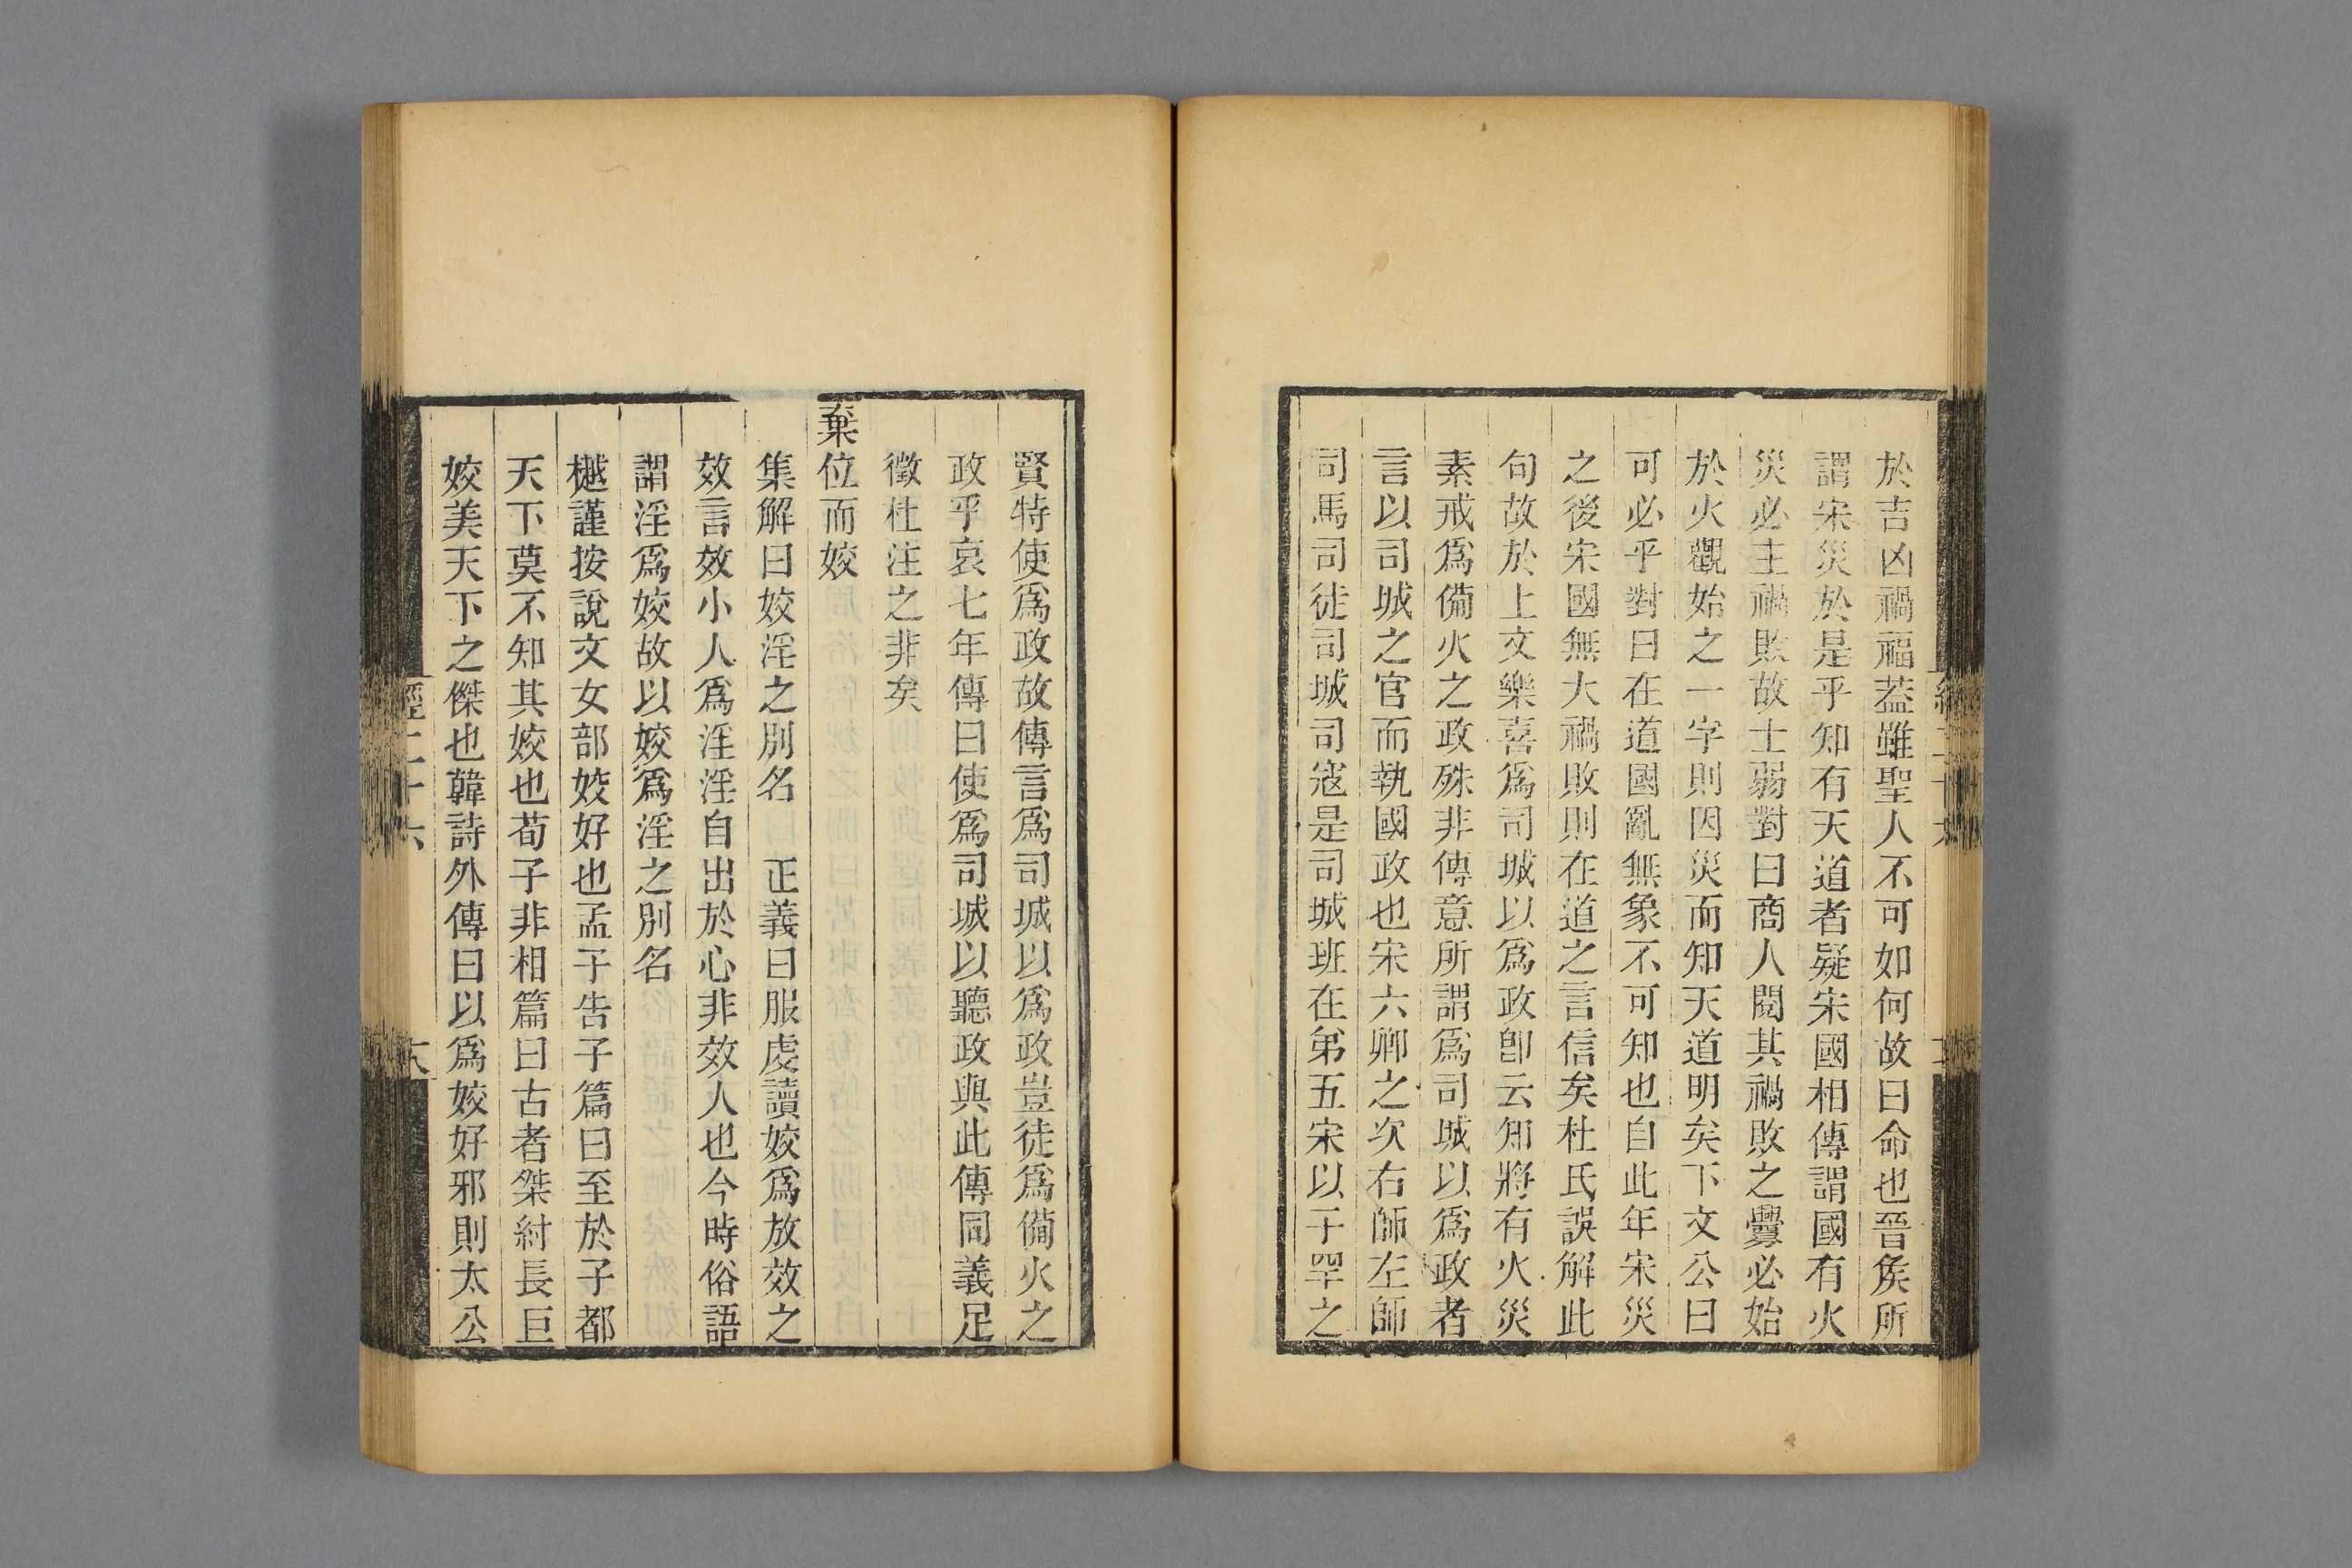 於吉凶禍福葢雖聖人不可如何故曰命也晉矦所
謂宋災於是乎知有天道者疑宋國相傳謂國有火
災必主禍敗故士弱對曰商人閱其禍敗之釁必始
於火觀始之一字則因災而知天道明矣下文公曰
可必乎對曰在道國亂無象不可知也自此年宋災
之後宋國無大禍敗則在道之言信矣杜氏誤解此
句故於上文樂喜爲司城以爲政卽云知將有火災
素戒爲備火之政殊非傳意所謂爲司城以爲政者
言以司城之官而執國政也宋六卿之次右師左師
司馬司徒司城司寇是司城班在第五宋以子罕之
賢特使爲政故傳言爲司城以爲政豈徒爲備火之
政乎哀七年傳曰使爲司城以聽政與此傳同義足
徵杜注之非矣
棄位而姣
集解曰姣淫之別名 正義曰服虔讀姣爲放效之
效言效小人爲淫淫自出於心非效人也今時俗語
謂淫爲姣故以姣爲淫之別名
樾謹按說文女部姣好也孟子告子篇曰至於子都
天下莫不知其姣也荀子非相篇曰古者桀紂長巨
姣美天下之傑也韓詩外傳曰以爲姣好邪則太公
經二十六